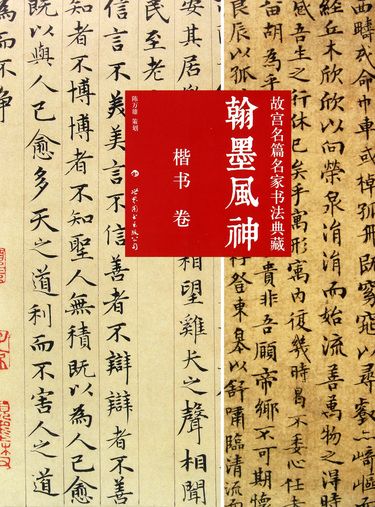 故宫名篇名家书法典藏
翰墨風神
楷书 卷
陈万雄 策划
世界图书出版公司
經丘木欣欣以向榮泉涓涓而始流善萬物之得時
感吾生之行休已矣乎寓形宇內復幾時曷不委心任
胡為乎
貴非吾願帝鄉不可期懷
良辰以孤
登東皋以舒嘯臨清流而
安其居
相望雞犬之聲相聞
民至老
信言不美美言不信善者不辯辯者不
知者不博博者不知聖人無積既以為人己愈
既以與人己愈多天之道利而不害人之道
為而不爭